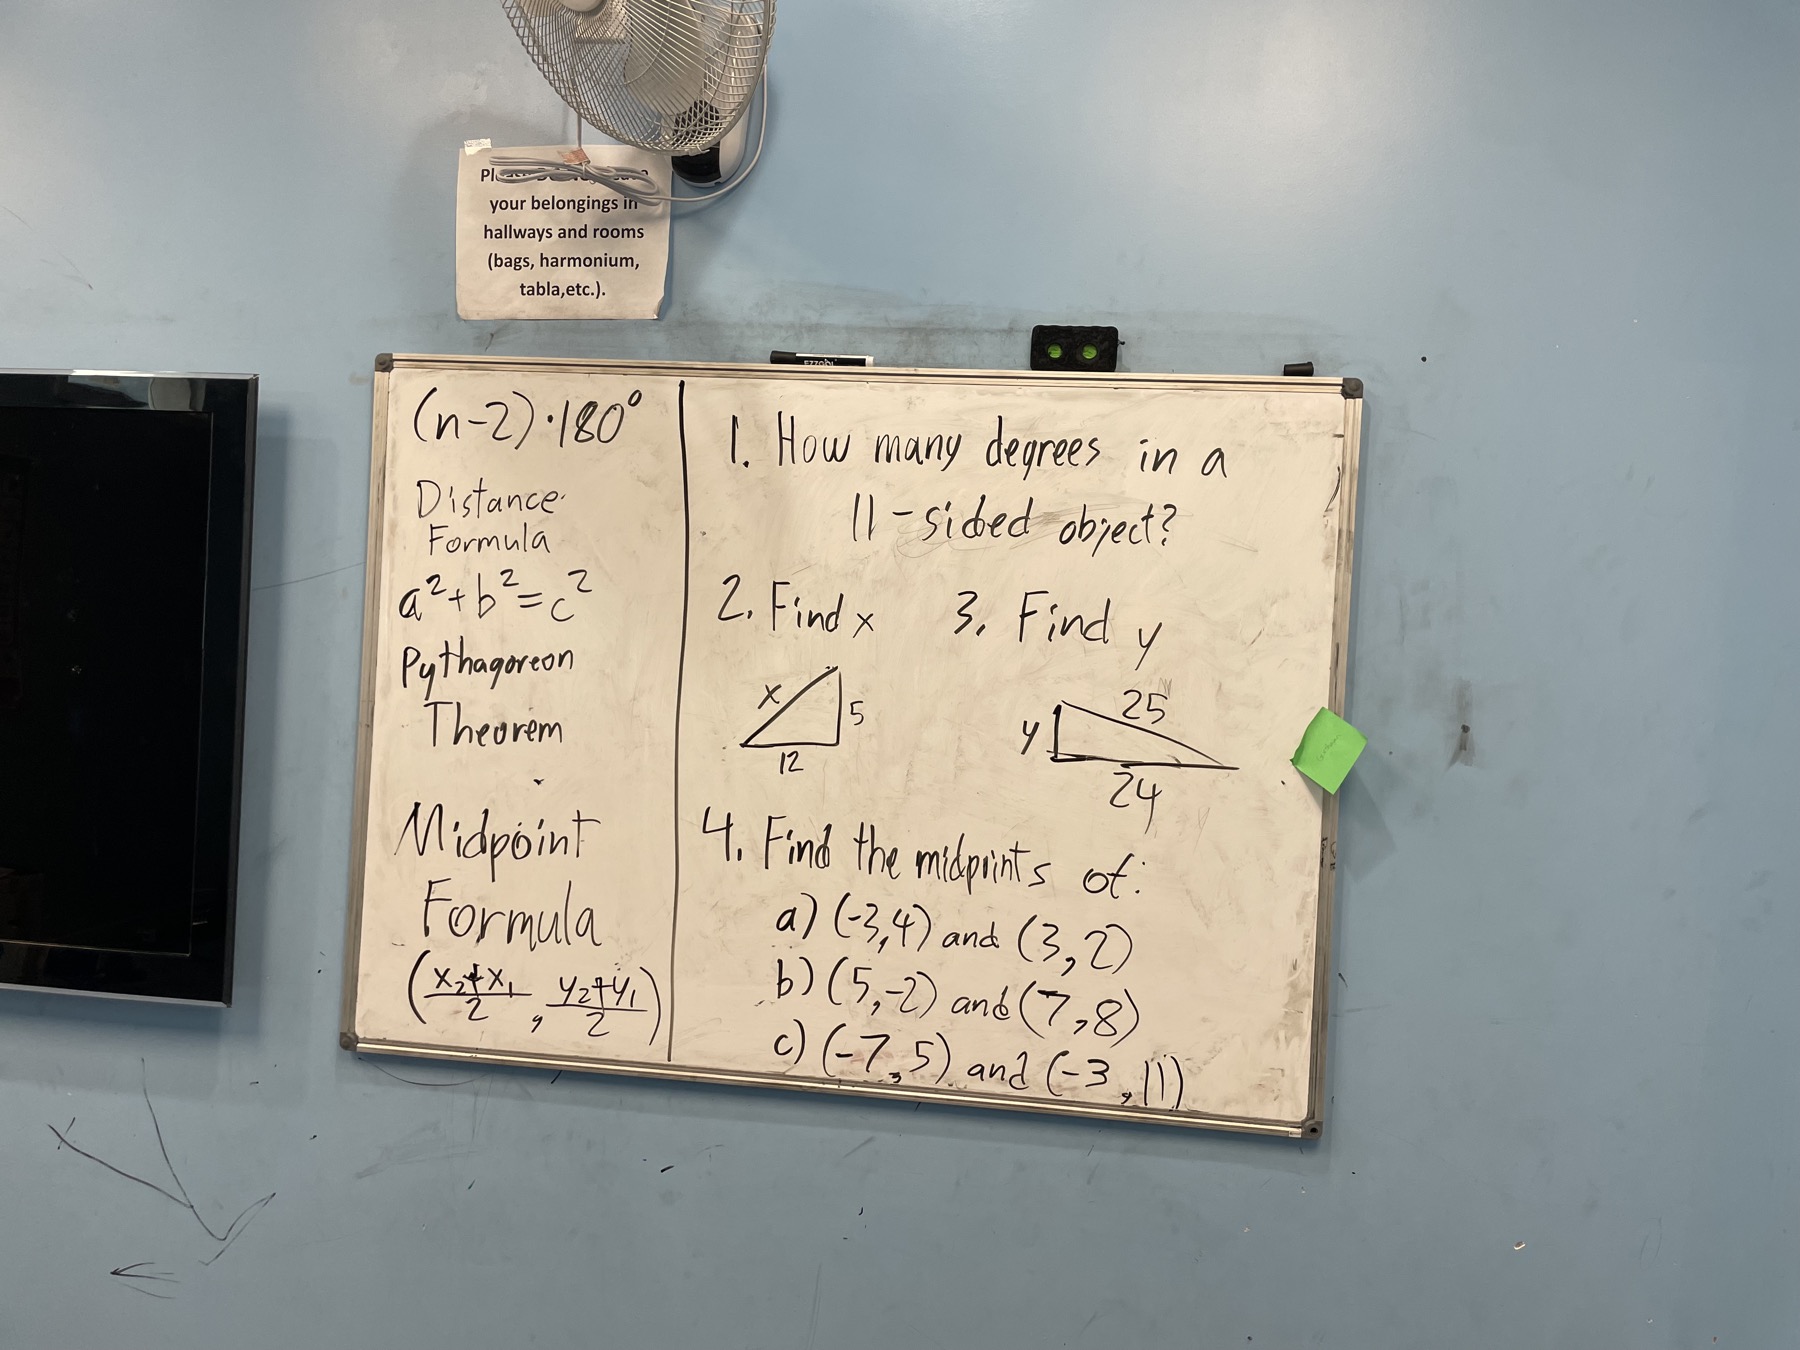 your belongings in
hallways and rooms
(bags, harmonium,
tabla,etc.).
(n-2)·180°
Distance
Formula
a²+b²=c²
Pythagoreon
Theorem
Midpoint
Formula
(x₂+x₁/2, y₂+y₁/2)
1. How many degrees in a
11-sided object?
2. Find x
3. Find y
x
5
12
y
25
24
4. Find the midpoints of:
a) (-3,4) and (3,2)
b) (5,-2) and (7,8)
c) (-7,5) and (-3,11)